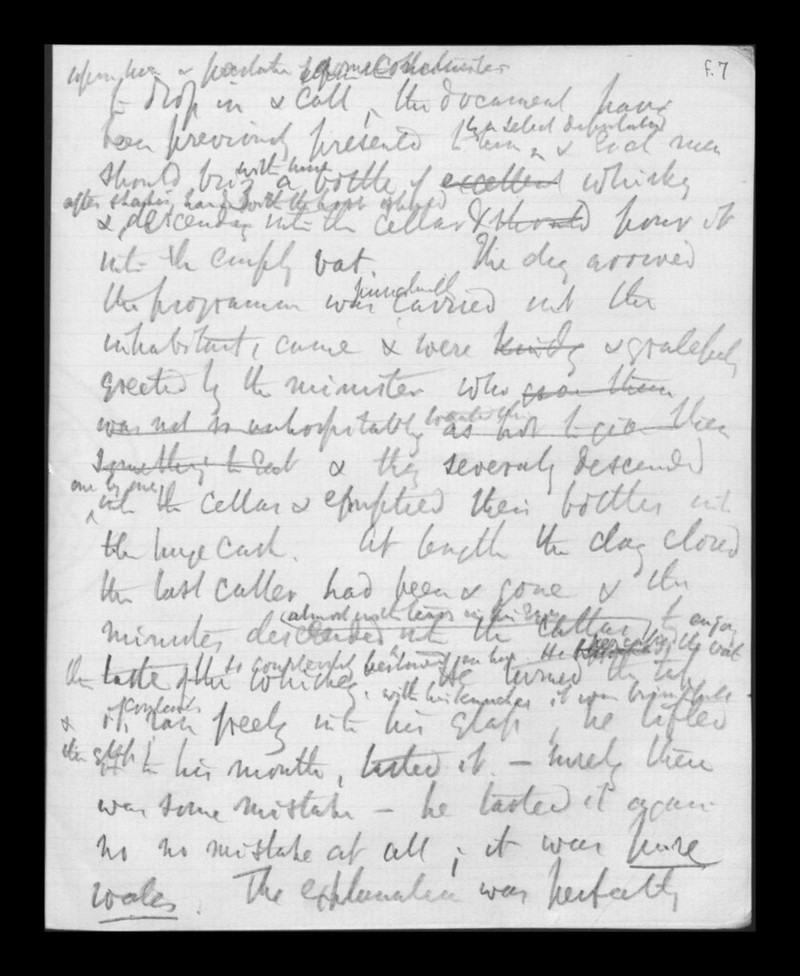 f.7
upon him &
to drop in & call, the document having
been previously presented to him by a select deputation & each man
should bring with him a bottle of excellent whisky
after shaking hands with the
& descending into the cellar & should pour it
into the empty vat. The day arrived
the programme was punctually carried out the
inhabitants came & were kindly & gratefully
greeted by the minister who gave them
was not so unhospitably as not to give them
something to eat & they severally descended
one by one
into the cellar & emptied their bottles into
the huge cask. At length the day closed
the last caller had been & gone & the
almost with tears in his eyes
minister descended into the cellar to enjoy
the taste of the whisky so bestowed upon him. He the vat
with his knuckles it was brimful. He turned the tap
& it ran freely into his glass, he lifted
the glass
it to his mouth, tasted it. – surely there
was some mistake – he tasted it again
no no mistake at all; it was pure
water. The explanation was perfectly